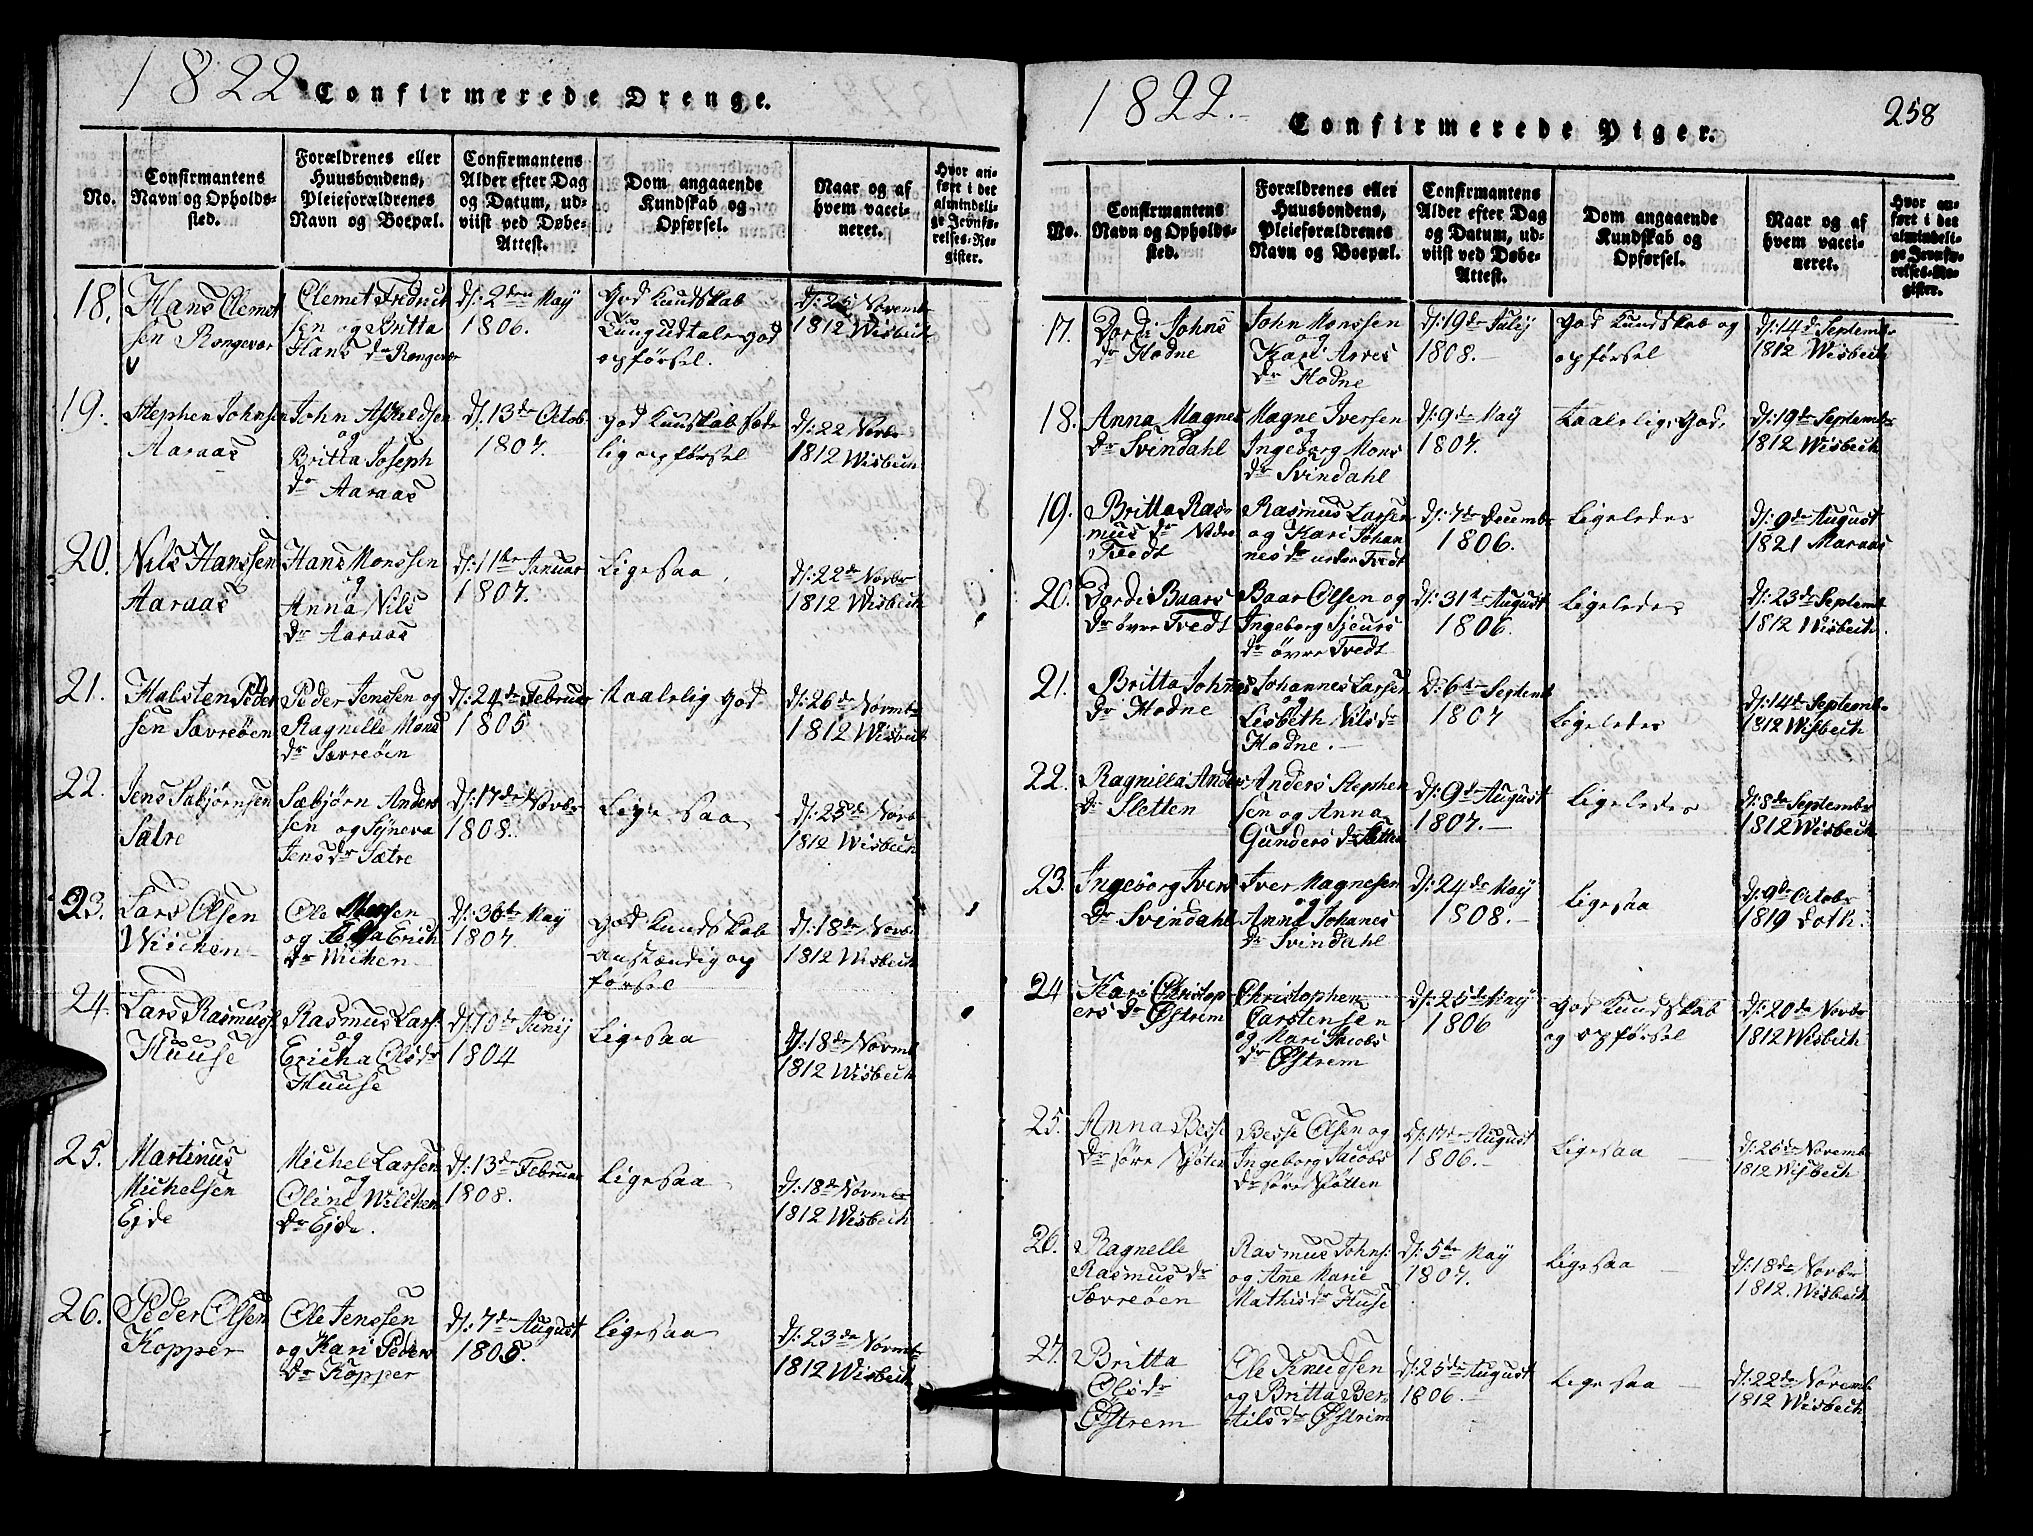 1822 Confirmerede Drenge.
No.
Confirmantens
Navn og Opholds-
sted.
Forældrenes eller
Huusbondens,
Pleieforældrenes
Navn og Boepæl.
Confirmantens
Alder efter Dag
og Datum, ud-
viist ved Døbe-
Attest.
Dom angaaende
Kundskab og
Opførsel.
Naar og af
hvem vacci-
neret.
Hvor an-
ført i det
almindeli-
ge Jevnfø-
relses-Re-
gister.
18.
Hans Clemet
sen Rongevær
Clemet Fridrich
sen og Britta
Hans dr Rongevær
d/: 2den Maÿ
1806.
God Kundskab
opførsel.
d/: 25 Novembr
1812 Wisbech
19.
Stephen Johnsen
Aaraas
John Askildsen
og
Britta Joseph
dr Aaraas
d/: 13de Octob
1807.
God Kundskab sæde
lig opførsel
d/: 22 Novbr
1812 Wisbech
20.
Nils Hanssen
Aaraas
Hans Monssen
og
Anna Nils
dr Aaraas
d/: 11te Januar
1807.
Ligesaa
d/: 22de Novbr
1812 Wisbech
21.
Halsten Peder
sen Sævreøen
Peder Jenssen og
Ragnille Mons
dr Sævreøen
d/: 24de Februar
1805
Taalelig God
d/: 26de Novmbr
1812 Wisbech
22.
Jens Sæbjørnsen
Sætre
Sæbjørn Anders
sen og Syneva
Jens dr Sætre
d/: 17de Novbr
1808.
Lige saa
d/: 23de Novb
1812 Wisbech
23.
Lars Olsen
Wiichen
Ole
og Erich
dr Wichen
d/: 30te Maÿ
1807.
God Kundskab
anstændig op
førsel
d/: 18de Novbr
1812 Wisbech
24.
Lars Rasmuss
Huuse
Rasmus Lars:
og
Ericha Ols dr
Huuse
d/: 10de Junij
1804
Ligesaa
d/: 18de Novmb
1812 Wisbech
25.
Martinus
Michelsen
Ejde
Michel Larsen
og
Oline Wilchen
dr Ejde.
d/: 13de Februar
1808.
Ligesaa
d/: 18de Novmbr
1812 Wisbech
26.
Peder Olsen
Kopper
Ole Jenssen
og Kari Peders
dr Kopper
d/: 7de August
1805.
Ligesaa
d/: 23de Novmbr
1812 Wisbech
1822.- Confirmerede Piger. 258
No.
Confirmantens
Navn og Opholds-
sted.
Forældrenes eller
Huusbondens,
Pleieforældrenes
Navn og Boepæl.
Confirmantens
Alder efter Dag
og Datum, ud-
viist ved Døbe-
Attest.
Dom angaaende
Kundskab og
Opførsel.
Naar og af
hvem vacci-
neret.
Hvor an-
ført i det
almindeli-
ge Jevnfø-
relses-Re-
gister.
17.
Bordi Johns
dr Hodne
John Monssen
og
Kari Arves
dr Hodne
d/: 19de Julij
1808.-
God Kundskab og
opførsel
d/: 14de Septembr
1812 Wisbech
18.
Anna Magnes
dr Svindahl
Magne Iversen
og
Ingeborg Mons
dr Svindahl
d/: 9de Maÿ
1807.
Taalelig God.
d/: 19de Septembr
1812 Wisbech
19.
Britta Ras-
mus dr Neder
Tvedt
Rasmus Larsen
og Kari Johan
nes dr neder Tvedt
d/: 7de Decembr
1806.
Ligeledes
d/: 9de August
1821 Maraas
20.
Bordi Baars
dr øvre Tvedt
Baar Olsen og
Ingeborg Sjeurs
dr øvre Tvedt
d/: 31te August
1806.
Ligeledes
d/: 23de Septemb
1812 Wisbech
21.
Britta Johñes
dr Hodne
Johannes Larsen
og
Lisbeth Nils dr
Hodne.-
d/: 6te Septemb
1807
Ligeledes
d/: 14de Septemb
1812 Wisbech
22.
Ragnilla Anders
dr Sletten
Anders Stephen
sen og Anna
Gunders dr Sletten
d/: 9de August
1807.-
Ligeledes
d/: 8de Septembr
1812 Wisbech
23.
Ingeborg Ivers
dr Svindahl
Iver Magnesen
og
Anna Johanes
dr Svindahl
d/: 24de Maÿ
1808.-
Ligesaa
d/: 9de Octobr
1819 Doth:
24
Kari Christop
ers dr Østrem
Christopher
Carstensen
og Mari Jacobs
dr Østrem
d/: 25de Maÿ
1806
God Kundskab
og opførsel
d/: 20de Novbr
1812 Wisbech
25.
Anna Besse
dr søre Njøten
Besse Olsen og
Ingeborg Jacobs
dr søre Njøtten
d/: 17de August
1806.-
Ligesaa
d/: 25de Novemb
1812 Wisbech
26.
Ragnelle
Rasmus dr
Sævreøen
Rasmus Johns:
og Añe Marie
Mathis dr Huse
d/: 5te Maÿ
1807.
Ligesaa
d/: 18de Novbr
1812. Wisbech
27.
Britta
Ols dr
Østrem
Ole Knudsen
og Britta Ber-
tils dr Østrem
d/: 25de August
1806.-
Ligesaa
d/: 22de Novemb
1812 Wisbech